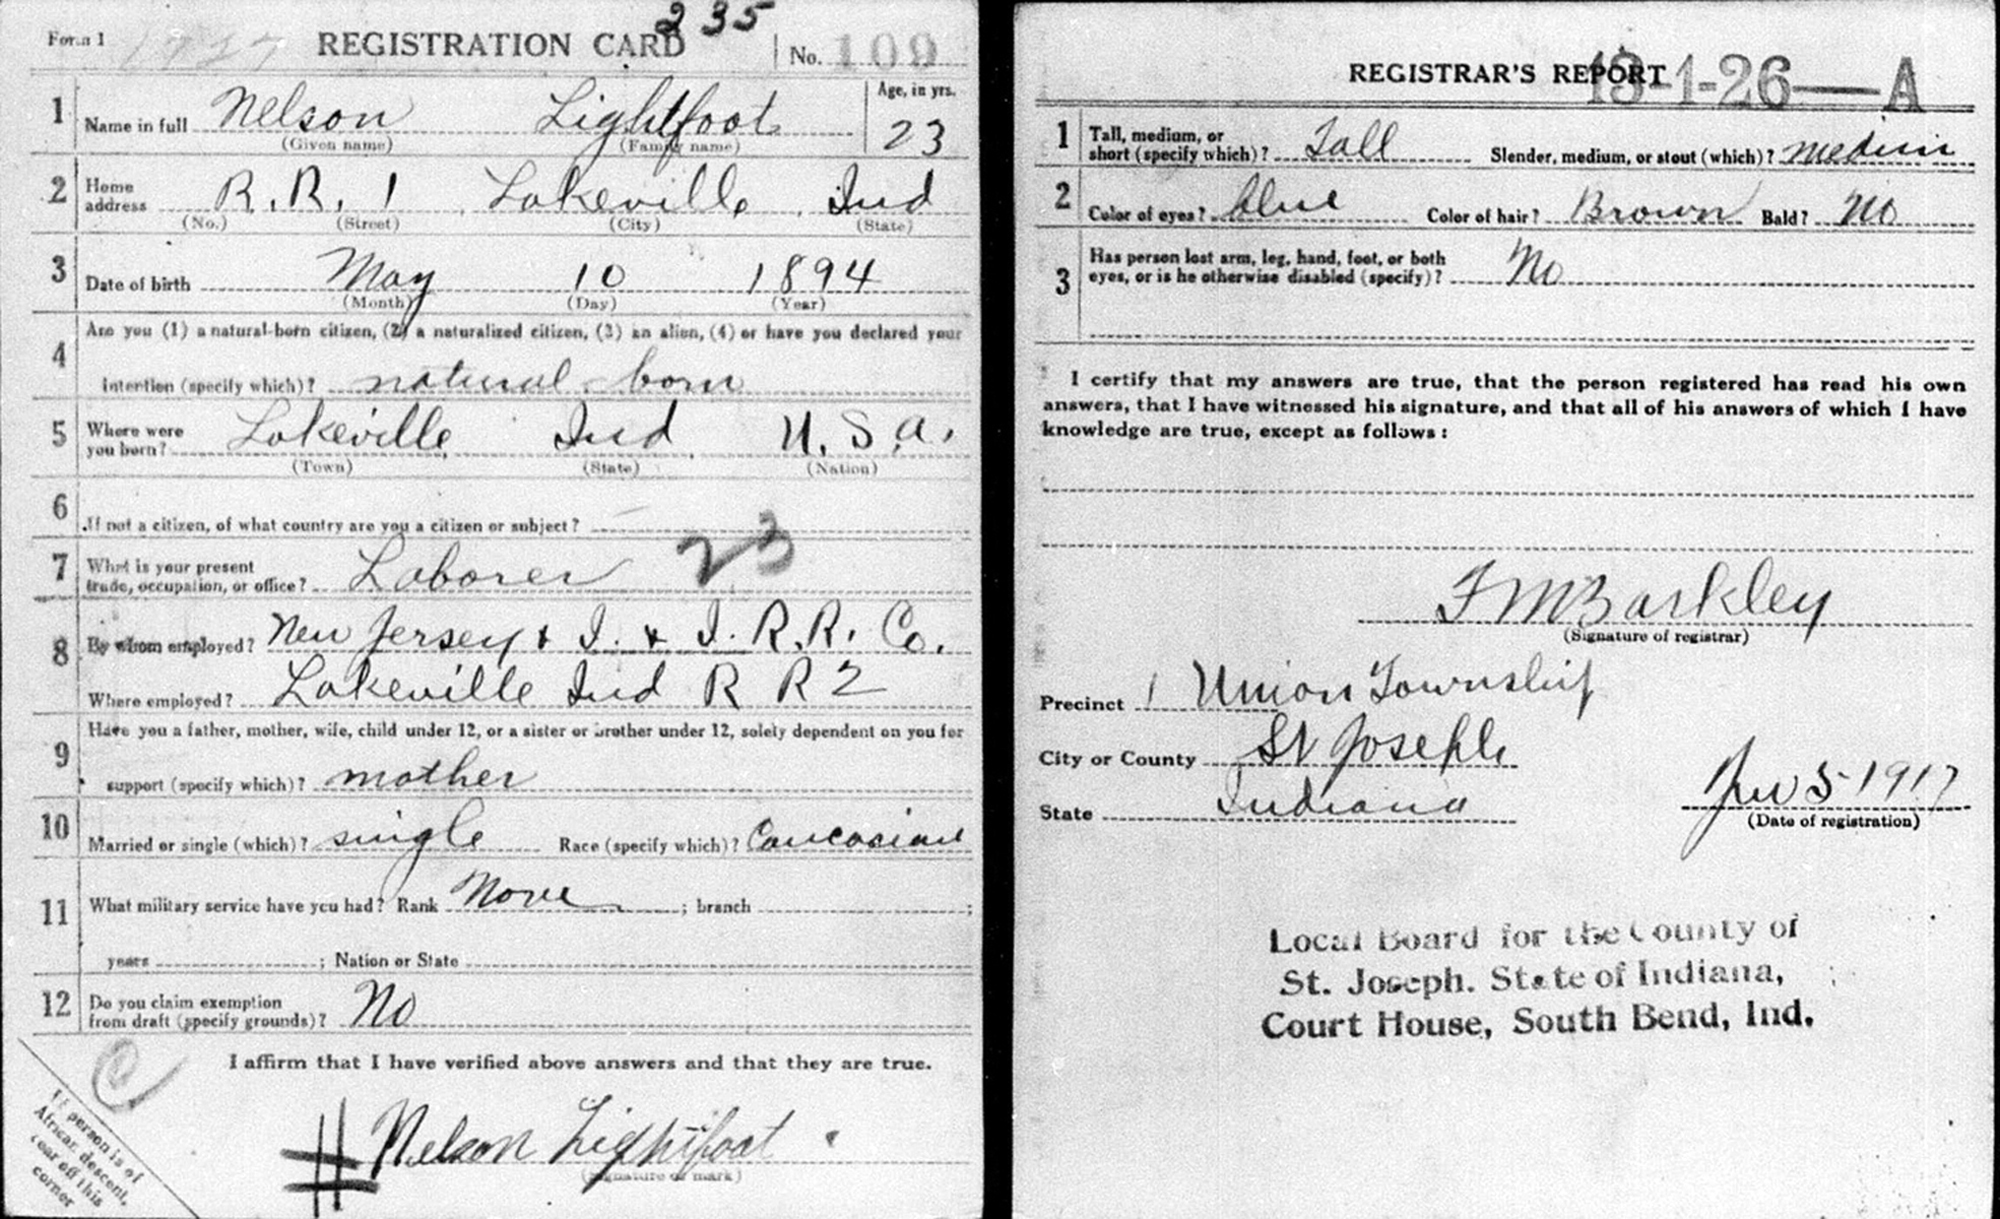 235
Form 1 1727 REGISTRATION CARD No. 109
1 Name in full Nelson Lightfoot Age, in yrs. 23
(Given name) (Family name)
2 Home address R. R. 1 Lakeville, Ind
(No.) (Street) (City) (State)
3 Date of birth May 10 1894
(Month) (Day) (Year)
4 Are you (1) a natural-born citizen, (2) a naturalized citizen, (3) an alien, (4) or have you declared your
intention (specify which)? natural born
5 Where were you born? Lakeville Ind U. S. A.
(Town) (State) (Nation)
6 If not a citizen, of what country are you a citizen or subject?
7 What is your present
trade, occupation, or office? Laborer 23
8 By whom employed? New Jersey & I. & I. R. R. Co.
Where employed? Lakeville Ind R R 2
9 Have you a father, mother, wife, child under 12, or a sister or brother under 12, solely dependent on you for
support (specify which)? mother
10 Married or single (which)? single Race (specify which)? Caucasian
11 What military service have you had? Rank None ; branch ;
years ; Nation or State
12 Do you claim exemption
from draft (specify grounds)? No
I affirm that I have verified above answers and that they are true.
C
# Nelson Lightfoot
(Signature or mark)
If person is of
African descent,
tear off this
corner
REGISTRAR'S REPORT 13-1-26-A
1 Tall, medium, or
short (specify which)? Tall Slender, medium, or stout (which)? medium
2 Color of eyes? blue Color of hair? Brown Bald? No
3 Has person lost arm, leg, hand, foot, or both
eyes, or is he otherwise disabled (specify)? No
I certify that my answers are true, that the person registered has read his own
answers, that I have witnessed his signature, and that all of his answers of which I have
knowledge are true, except as follows:
F M Barkley
(Signature of registrar)
Precinct 1 Union Township
City or County St Joseph
State Indiana Jun 5 1917
(Date of registration)
Local Board for the County of
St. Joseph. State of Indiana,
Court House, South Bend, Ind.